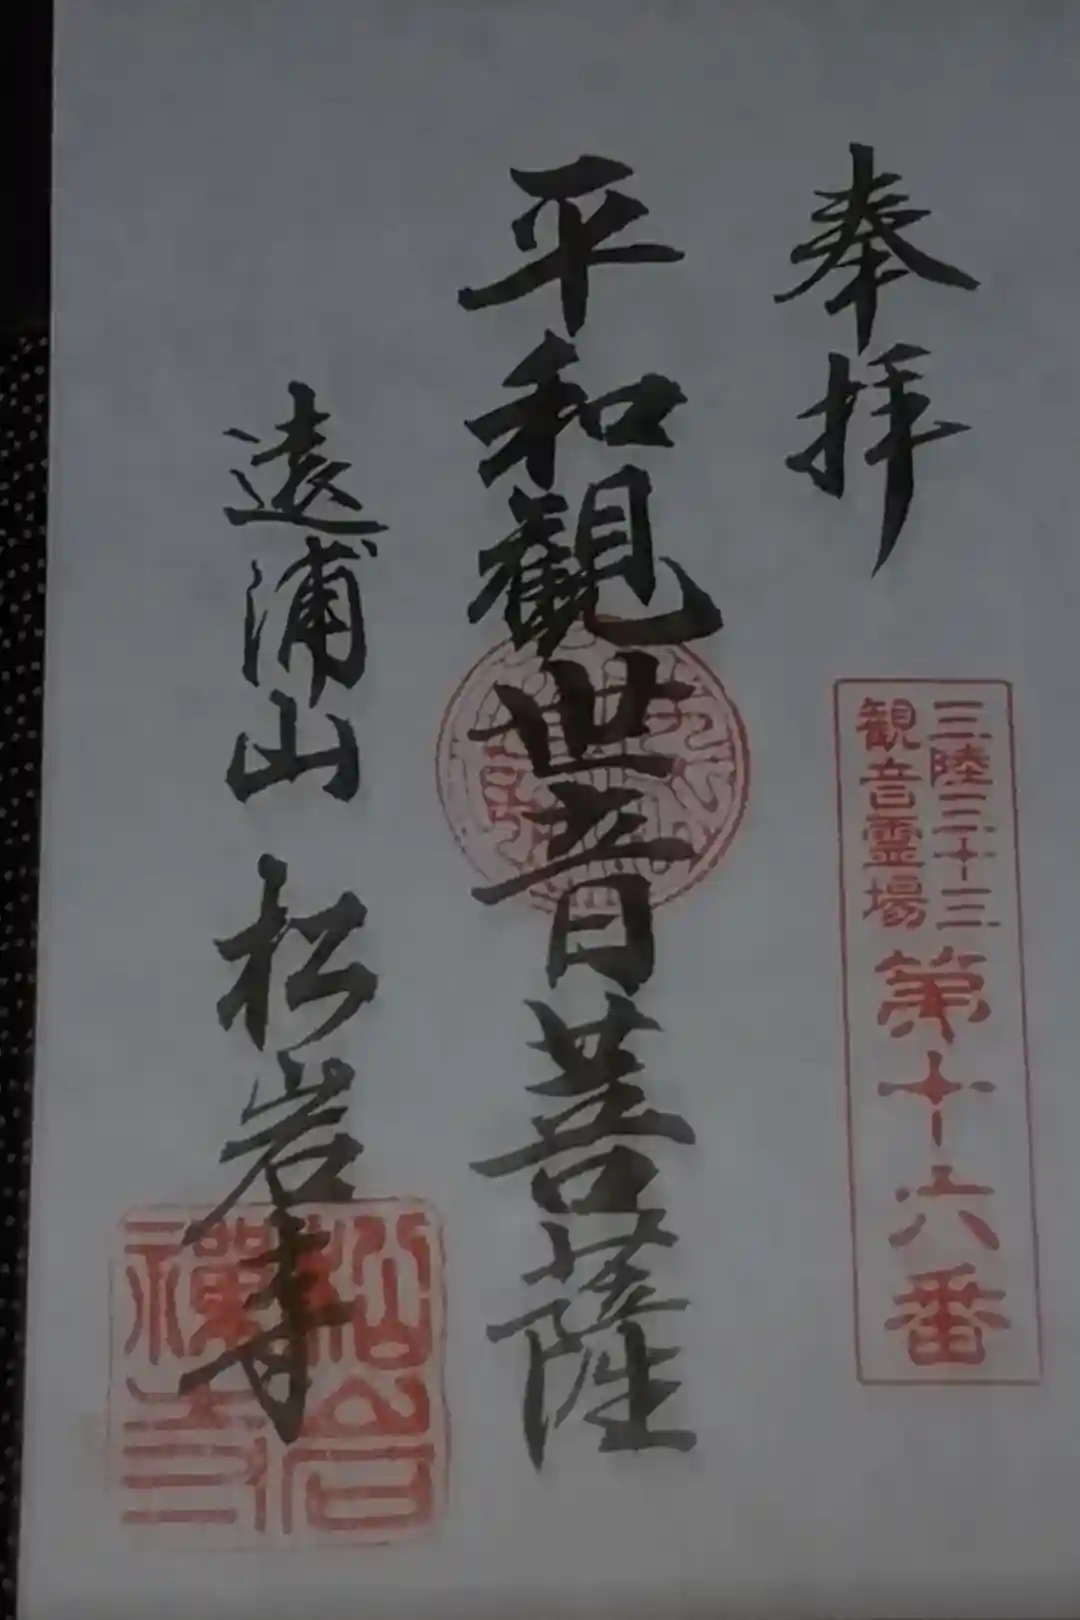 奉拝
三陸三十三
観音霊場
第十六番
平和觀世音菩薩
遠浦山 松岩寺
松岩
禪寺